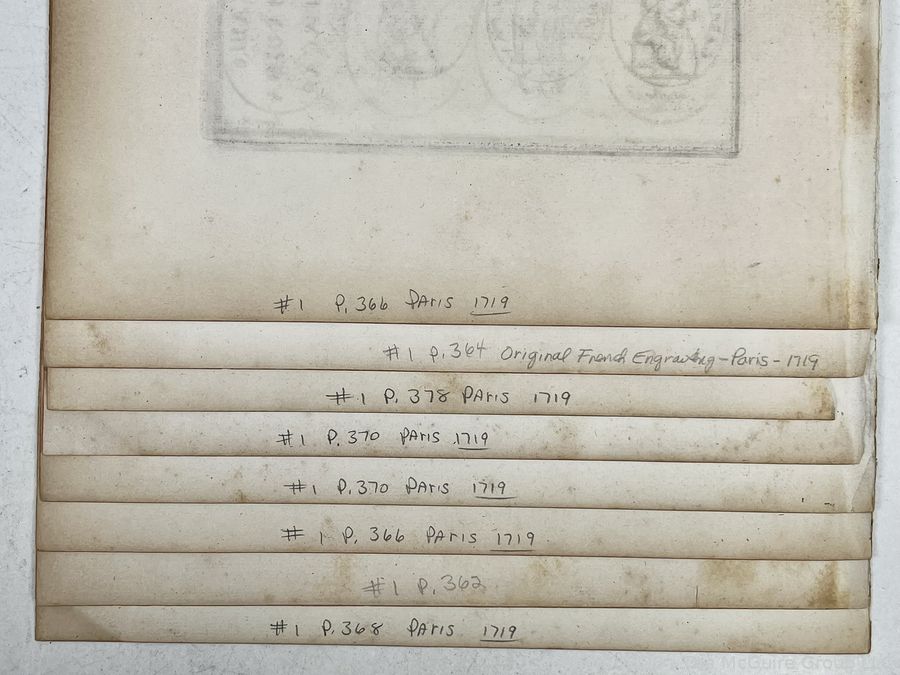 #1 P. 366 PARIS 1719
#1 P. 364 Original French Engraving - Paris - 1719
#1 P. 378 PARIS 1719
#1 P. 370 PARIS 1719
#1 P. 370 PARIS 1719
#1 P. 366 PARIS 1719
#1 P. 362
#1 P. 368 PARIS 1719
McGuire Group LLC